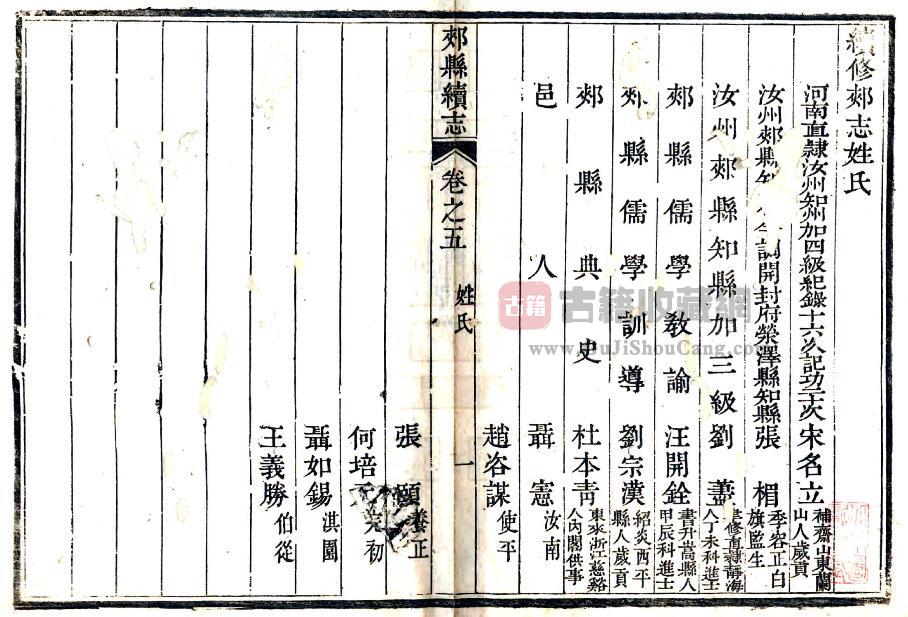 續修郟志姓氏
河南直隸汝州知州加四級紀錄十六次記功二次宋名立 補齋山東蘭山人歲貢
汝州郟縣知 今調開封府滎澤縣知縣張楣 季容正白旗監生
汝州郟縣知縣加三級劉 修直隸靜海人丁未科進士
郟縣儒學教諭汪開銓 書升嵩縣人甲辰科進士
郟縣儒學訓導劉宗漢 紹炎西平縣人歲貢
郟縣典史杜本青 東來浙江慈谿人內閣供事
邑人聶憲 汝南
趙咨謀 使平
郟縣續志 卷之五 姓氏 一
張頤 養正
何培 初
聶如錫 淇園
王義勝 伯從
古籍 古籍收藏網
www.GuJiShouCang.com